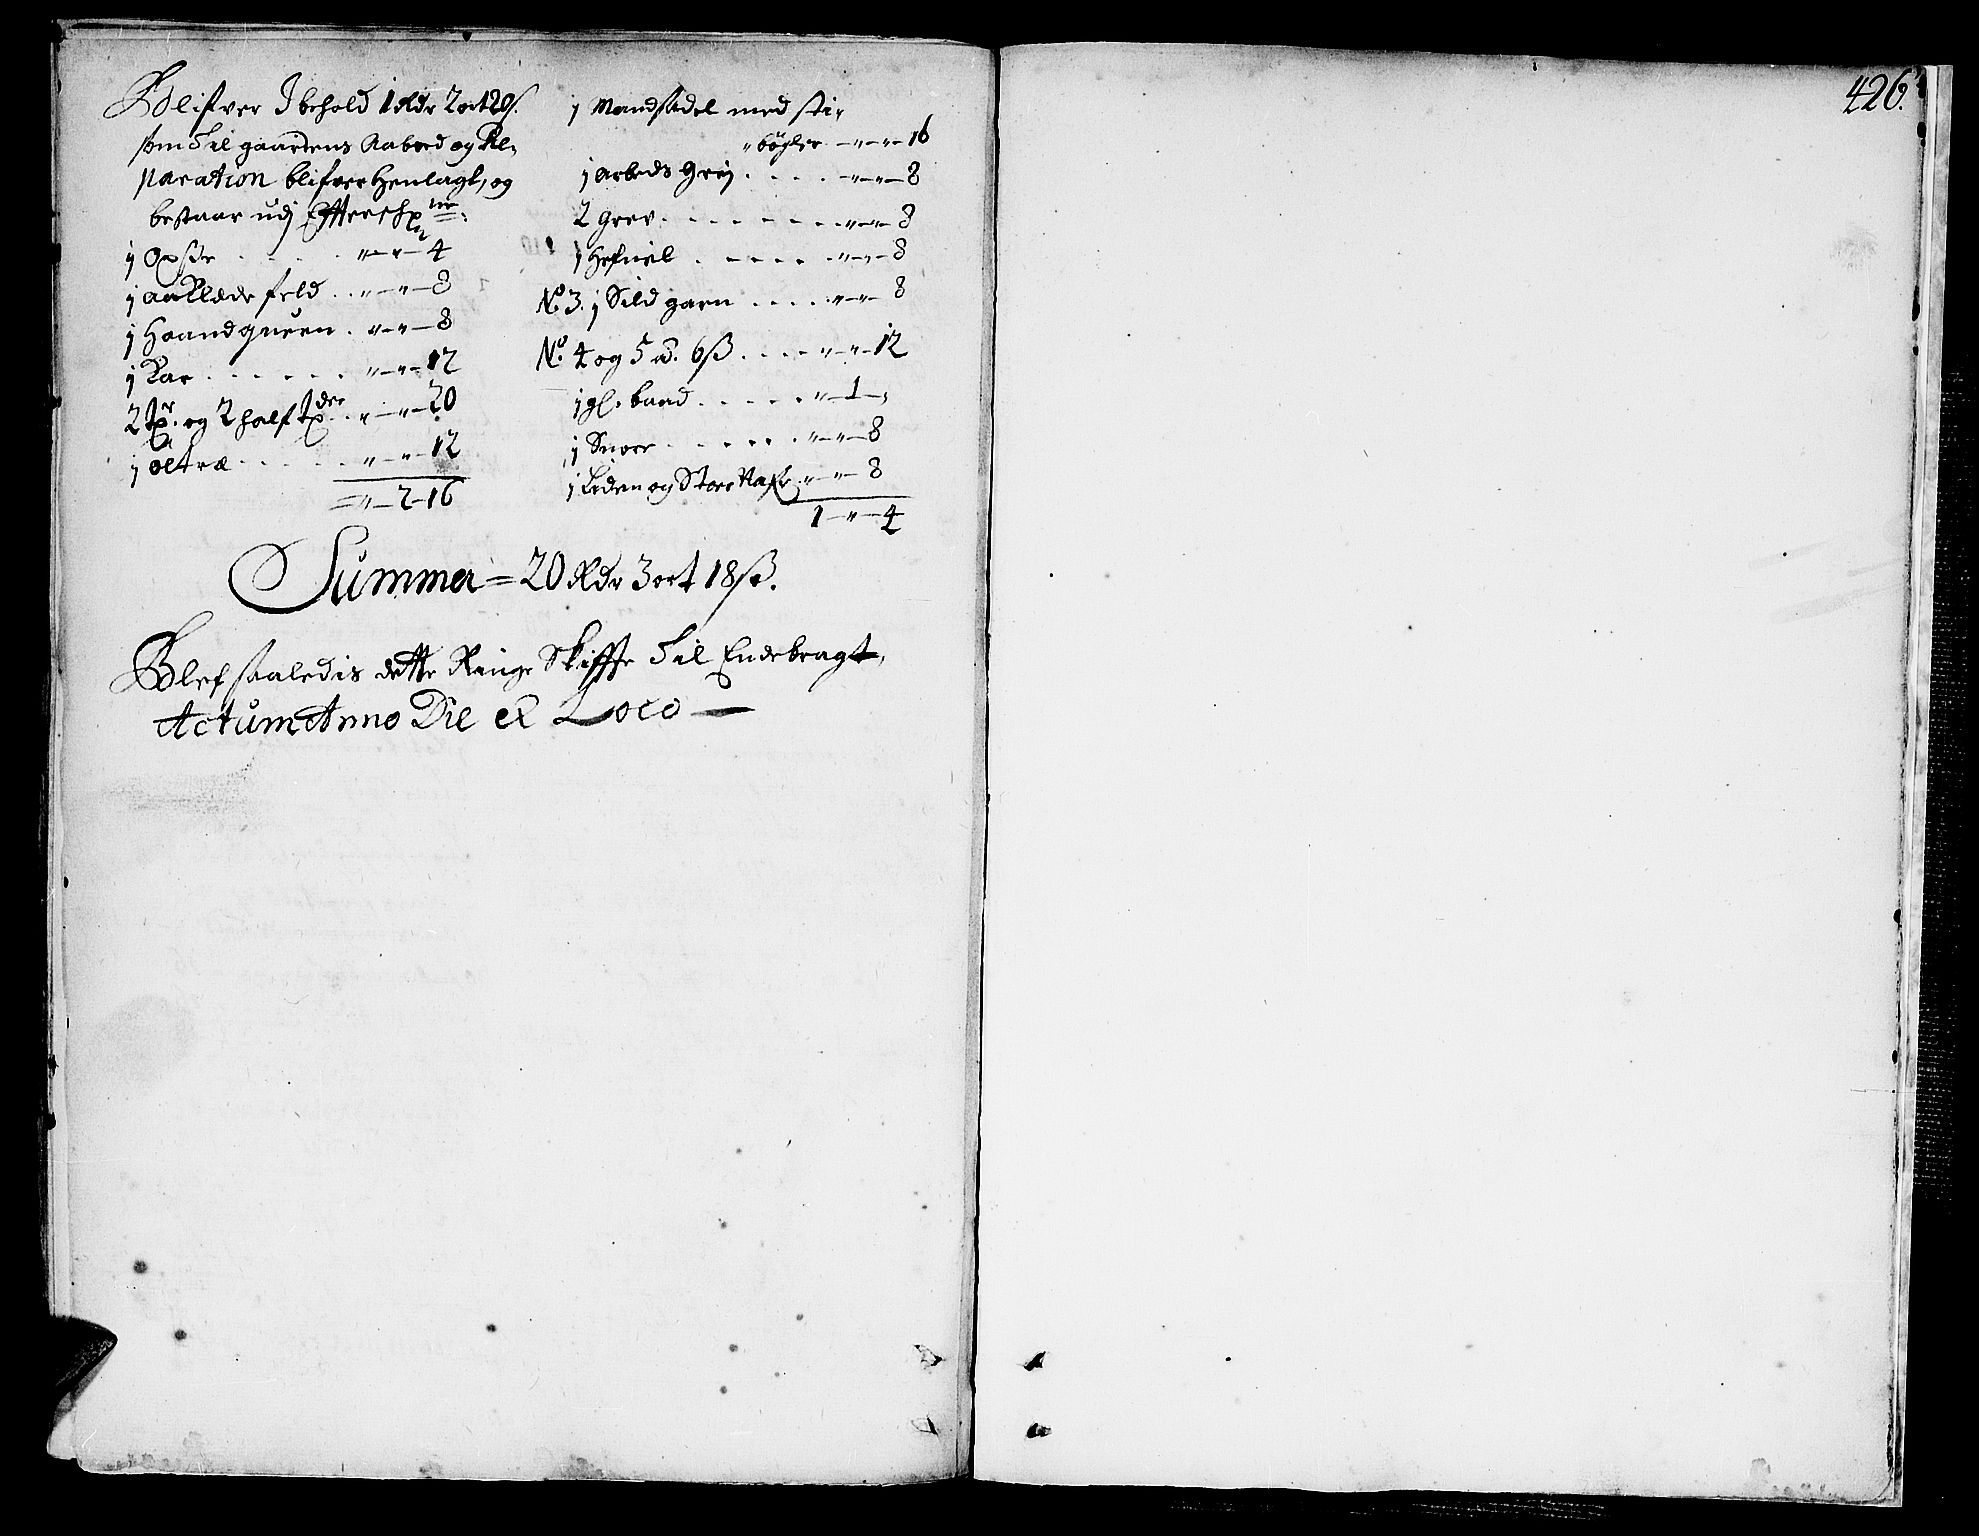 Blifver Ibehold 1 Rdr 2 ort 20 s.
som Til gaardens Aabod og Re-
paration blifver Henlagt, og
bestaar udj Effterschne:
1 Oxse . . . . . „ — „ — 4
1 aaklæde feld . . „ — „ — 8
1 Haandqueen . „ — „ — 8
1 Kar . . . . . . „ — „ — 12
2 tr. og 2 half tder . . „ — „ — 20
1 øltræ . . . . . „ — „ — 12
= „ — 2 — 16
1 Mandsadel med sti-
bøgler — „ — „ — 16
1 arbeds Grej . . . . „ — „ — 8
2 grev . . . . . . . „ — „ — 8
1 Hefvel . . . . . „ — „ — 8
No. 3. 1 Sild garn . . . . „ — „ — 8
No. 4 og 5 a. 6 ß . . . . „ — „ — 12
1 gl. baad . . . . . „ — 1 — „
1 Snorr . . . . . . „ — „ — 8
1 Liden og Stor Nafr „ — „ — 8
1 — „ — 4
Summa = 20 Rdr 3 ort 18 ß.
Blef saaledis dette Ringe Skiffte Til Endebragt,
Actum Anno Die et Loco —
426.